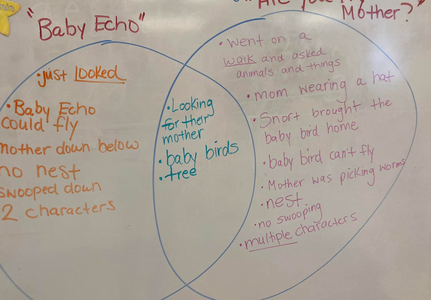 "Baby Echo"
Mother?"
just looked
• Baby Echo
could fly
mother down below
no nest
swooped down
2 characters
• Looking
for their
mother
• baby birds
• tree
• went on a
walk and asked
animals and things
• mom wearing a hat
• Snort brought the
baby bird home
• baby bird can't fly
• Mother was picking worms
• nest
• no swooping
• multiple characters